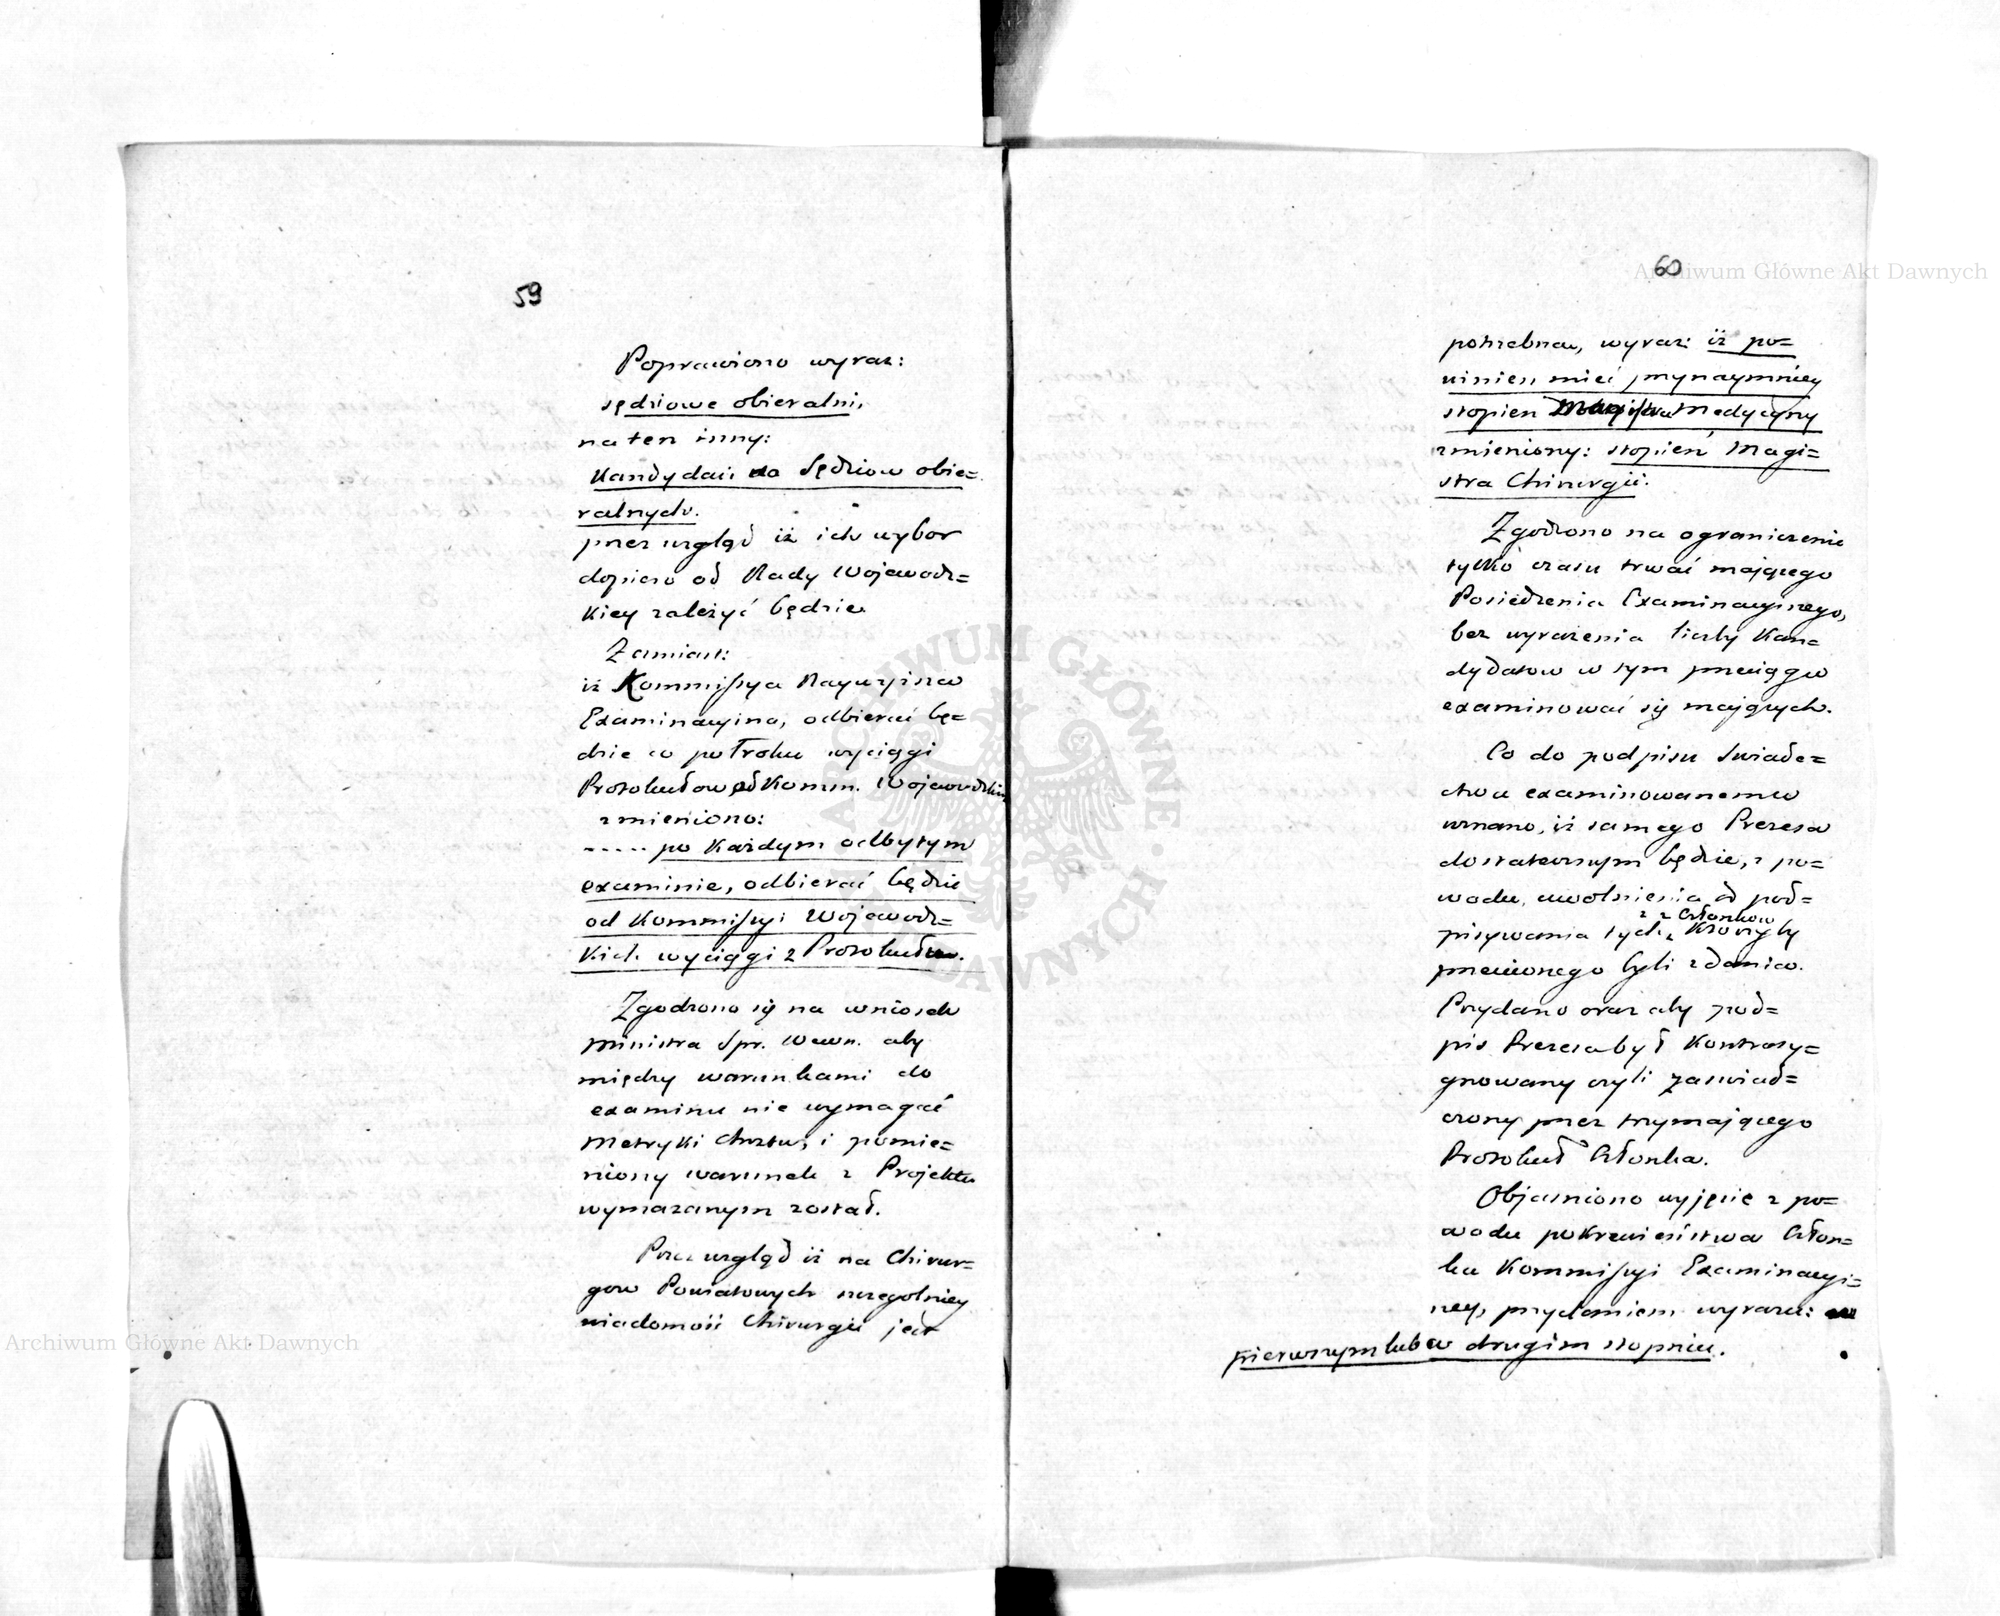 59
Poprawiono wyraz:
sędziowe obieralni,
na ten inny:
Kandydaci do Sędziow obie=
ralnych.
przez wzgląd iż ich wybor
dopiero od Rady Wojewodz=
Kiey zależyć będzie
Zamiast:
iż Kommissya Naywyższa
Examinacyina, odbierać bę=
dzie co puł roku wyciągi
Protokułow od Komm. Wojewodzkich
zmieniono:
----- po Każdym odbytym
examinie, odbierać będzie
od Kommissyi Wojewodz=
Kich wyciągi z Protokułu.
Zgodzono się na wniosek
Ministra Spr. Wewn. aby
między warunkami do
examinu nie wymagać
Metryki chrztu, i pomie=
niony warunek z Projektu
wymazanym został.
Przez wzgląd iż na Chirur=
gow Powiatowych szczegolniey
wiadomość Chirurgii jest
60
potrzebna, wyraz: iż po=
winien mieć przynaymniey
stopien Magistra Medycyny
zmieniony: stopień Magi=
stra Chirurgii.
Zgodzono na ograniczenie
tylko czasu trwać mającego
Posiedzenia Examinacyinego,
bez wyrażenia liczby Kan=
dydatow w tym przeciągu
examinować się mających.
Co do podpisu Swiade=
ctwa examinowanemu
uznano, iż samego Prezesa
dostatecznym będzie, z po=
wodu uwolnienia od pod=
z Członkow
pisywania tych Ktorzyby
przeciwnego byli zdania.
Przydano oraz aby pod=
pis Prezesa był Kontrasy=
gnowany czyli zaswiad=
czony przez trzymającego
Protokuł Członka.
Objasniono wyjęcie z po=
wodu pokrewieństwa Człon=
ka Kommissyi Examinacyi=
ney, przydaniem wyrazu: w
pierwszym lub w drugim stopniu.
Archiwum Główne Akt Dawnych
Archiwum Główne Akt Dawnych
ARCHIWUM GŁÓWNE AKT DAWNYCH